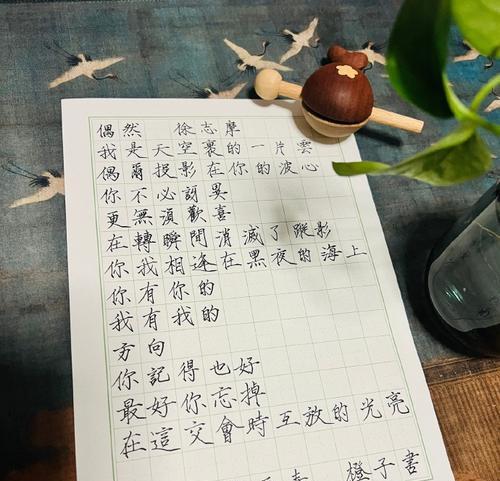 偶然 徐志摩
我是天空裏的一片雲
偶爾投影在你的波心
你不必訝異
更無須歡喜
在轉瞬間消滅了蹤影
你我相逢在黑夜的海上
你有你的
我有我的
方向
你記得也好
最好你忘掉
在這交會時互放的光亮
橙子書